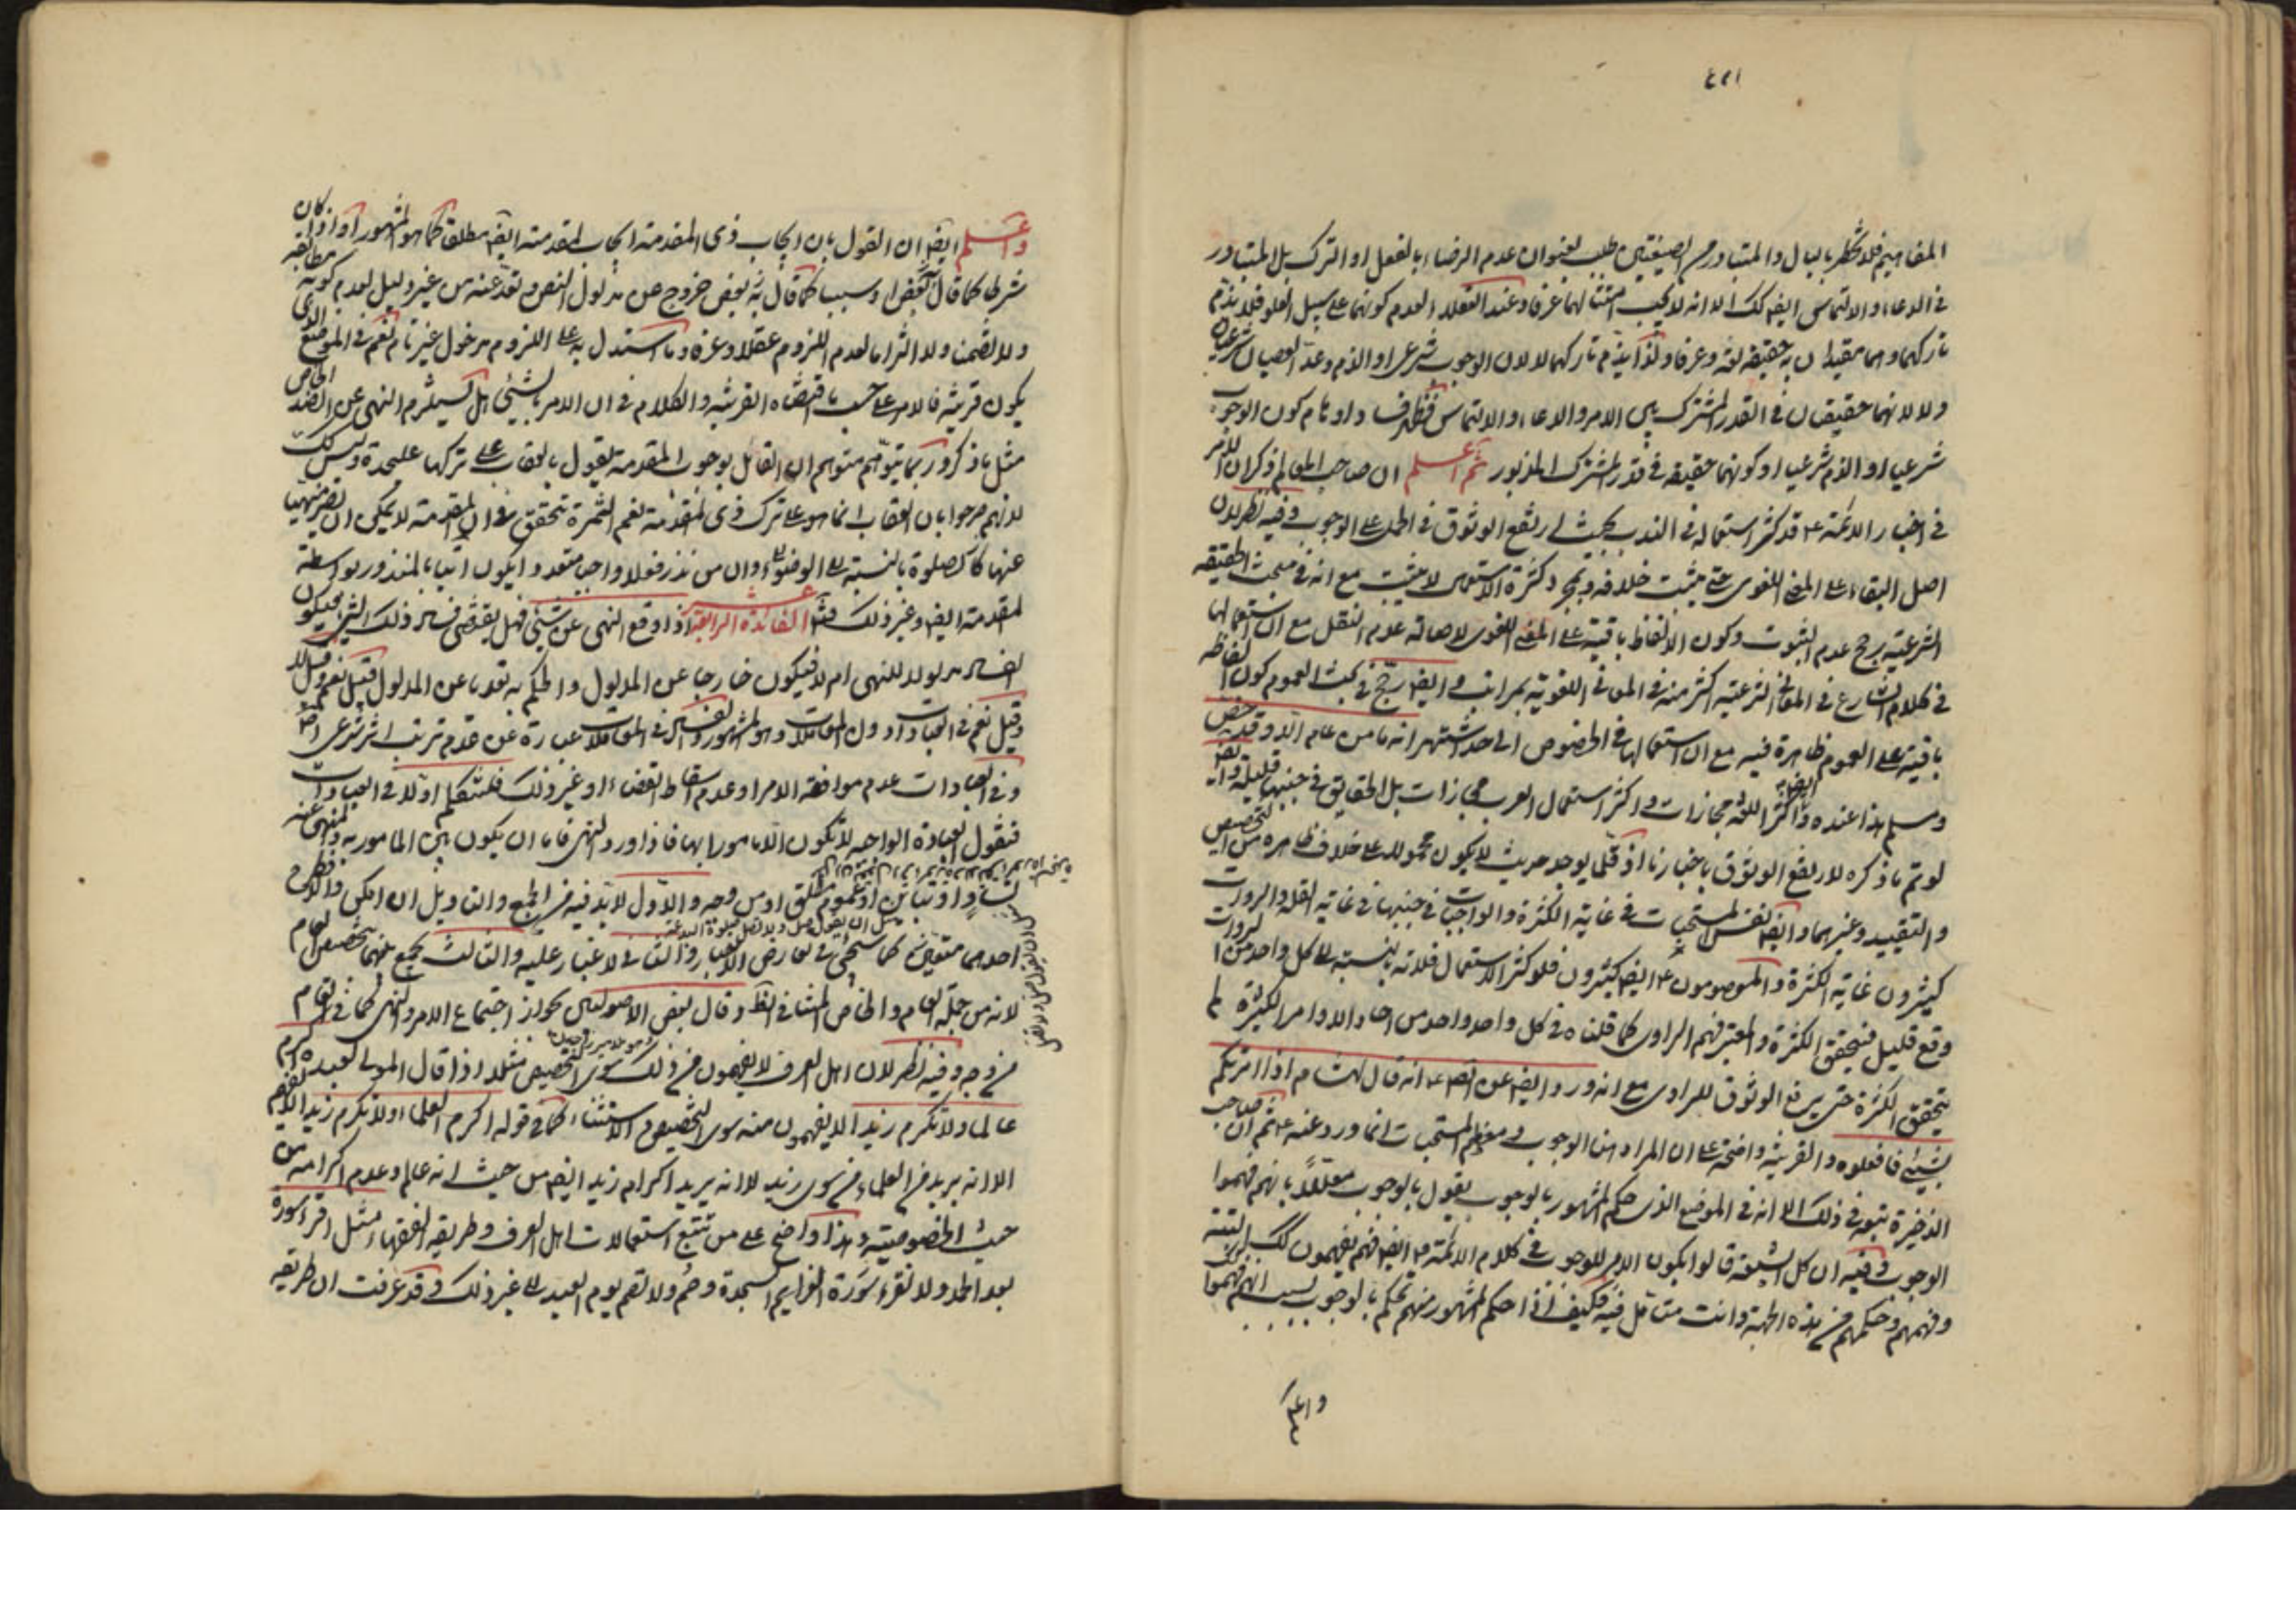 المفاهيم فلا تخطر بالبال والمتبادر من الصيغتين طلب بعنوان عدم الرضاء بالفعل او الترك بل المتبادر
في الدعاء والالتماس ايضا كك الا انه لا يجب امتثالهما عرفا وعند العقلاء لعدم كونهما على سبيل العلو فلا يذم
تاركهما وهما مقيدان به حقيقة لغة وعرفا ولذا يذم تاركهما لا لان الوجوب شرعي او الذم وعد العصيان شرعيان
ولا لانهما حقيقتان في القدر المشترك بين الامر والدعاء والالتماس فظهر فساد اوهام كون الوجوب
شرعيا او الذم شرعيا او كونهما حقيقة في قدر المشترك المزبور ثم اعلم ان صاحب المعالم ذكر ان الامر
في اخبار الائمة ع قد كثر استعماله في الندب بحيث ارتفع الوثوق في الحمل على الوجوب وفيه نظر لان
اصل البقاء على المعنى اللغوي حتى يثبت خلافه وبمجرد كثرة الاستعمال لا يثبت مع انه في مبحث الحقيقة
الشرعية رجح عدم الثبوت وكون الالفاظ باقية على المعنى اللغوي لاصالة عدم النقل مع ان استعمالها
في كلام الشارع في المعاني الشرعية اكثر منه في المعاني اللغوية بمراتب وايضا رجح في بحث العموم كون الفاظه
باقية على العموم ظاهرة فيه مع ان استعمالها في الخصوص الى حد اشتهر انه ما من عام الا وقد خص
وسلم هذا عنده وايضا اكثر اللغة مجازات واكثر استعمال العرب مجازات بل الحقايق في جنبها قليلة وايضا
لو تم ما ذكره لارتفع الوثوق باخبارنا اذ قلما يوجد حديث لا يكون محمولا على خلاف ظاهره من التخصيص
والتقييد وغيرهما وايضا نفس المستحبات في غاية الكثرة والواجبات في جنبها في غاية القلة والرواة
كثيرون غاية الكثرة والمعصومون ع ايضا كثيرون فلو كثر الاستعمال فلانه بالنسبة الى كل واحد من الرواة
وقع قليل فتحقق الكثرة والمعتبر فهم الراوي كما قلناه في كل واحد واحد من احاد الاوامر الكثيرة لم
يتحقق الكثرة حتى يرفع الوثوق للراوي مع انه ورد ايضا عن الصم ع انه قال لهشام اذا امرتكم
بشيئ فافعلوه والقرينة واضحة على ان المراد هنا الوجوب ومعظم المستحبات انما ورد عنه ع ثم ان صاحب
الذخيرة تبعه في ذلك الا انه في الموضع الذي حكم المشهور بالوجوب يقول بالوجوب معللا بانهم فهموا
الوجوب وفيه ان كل الشيعة قالوا بكون الامر للوجوب في كلام الائمة ع ايضا فهم يفهمون كك البتة
وفهمهم وحكمهم من هذه الجهة وانت متامل فيه فكيف اذا حكم المشهور منهم تحكم بالوجوب بسبب انهم فهموا
واعلم
واعلم ايضا ان القول بان ايجاب ذي المقدمة ايجاب لمقدمته ايضا مطلقا كما هو المشهور او اذا كان
شرطا كما قال بعض او سببا كما قال به بعض خروج عن مدلول النص وتعد عنه من غير دليل لعدم كونه مطابقة
ولا تضمنا ولا التزاما لعدم اللزوم عقلا وعرفا وما استدل به على اللزوم مدخول غير تام نعم في الموضع الذي
يكون قرينة فالامر على حسب ما اقتضاه القرينة والكلام في ان الامر بالشيئ هل يستلزم النهي عن الضد الخاص
مثل ما ذكر وربما يتوهم متوهم ان القائل بوجوب المقدمة يقول بالعقاب على تركها عليحدة وليس كك
لانهم صرحوا بان العقاب انما هو على ترك ذي المقدمة نعم الثمرة تتحقق في ان المقدمة لا يمكن ان تصير منهيا
عنها كالصلوة بالنسبة الى الوضوء وان من نذر فعلا واجبا متعددا يكون اتيا بالمنذور بواسطة
المقدمة ايضا وغير ذلك الفائدة الرابعة عشر اذا وقع النهي عن شيئ فهل يقتضي فساد ذلك الشيئ فيكون
الفساد مدلولا للنهي ام لا فيكون خارجا عن المدلول والحكم به تعديا عن المدلول فقيل نعم وقيل لا
وقيل نعم في العبادات دون المعاملات وهو المشهور والفساد في المعاملات عبارة عن عدم ترتب اثر شرعي
وفي العبادات عدم موافقة الامر او عدم اسقاط القضاء او غير ذلك فلنتكلم اولا في العبادات
فنقول العبادة الواحدة لا تكون الا مامورا بها فاذا ورد النهي فاما ان يكون بين المامور به والمنهي عنه
تساو او تباين او عموم مطلق او من وجه والاول لابد فيه من الجمع والتاويل ان امكن والا فطرح
احدهما متعين كما سيجئ في تعارض الاخبار والثاني لا غبار عليه والثالث يجمع بينهما بتخصيص العام
لانه من جملة العام والخاص المتنافي الظ وقال بعض الاصوليين بجواز اجتماع الامر والنهي كما في العام
من وجه وفيه نظر لان اهل العرف لا يفهمون من ذلك سوى التخصيص مثلا اذا قال المولى لعبده اكرم
عالما ولا تكرم زيدا لا يفهمون منه سوى التخصيص والاستثناء كما في قوله اكرم العلماء ولا تكرم زيدا لا يفهم
الا انه يريد من العلماء من سوى زيد لا انه يريد اكرام زيد ايضا من حيث انه عالم وعدم اكرامه من
حيث الخصوصية وهذا واضح على من تتبع استعمالات اهل العرف وطريقة الفقهاء مثل اقرا سورة
بعد الحمد ولا تقرء سورة العزايم السجدة وصم ولا تصم يوم العيد الى غير ذلك وقد عرفت ان طريقة